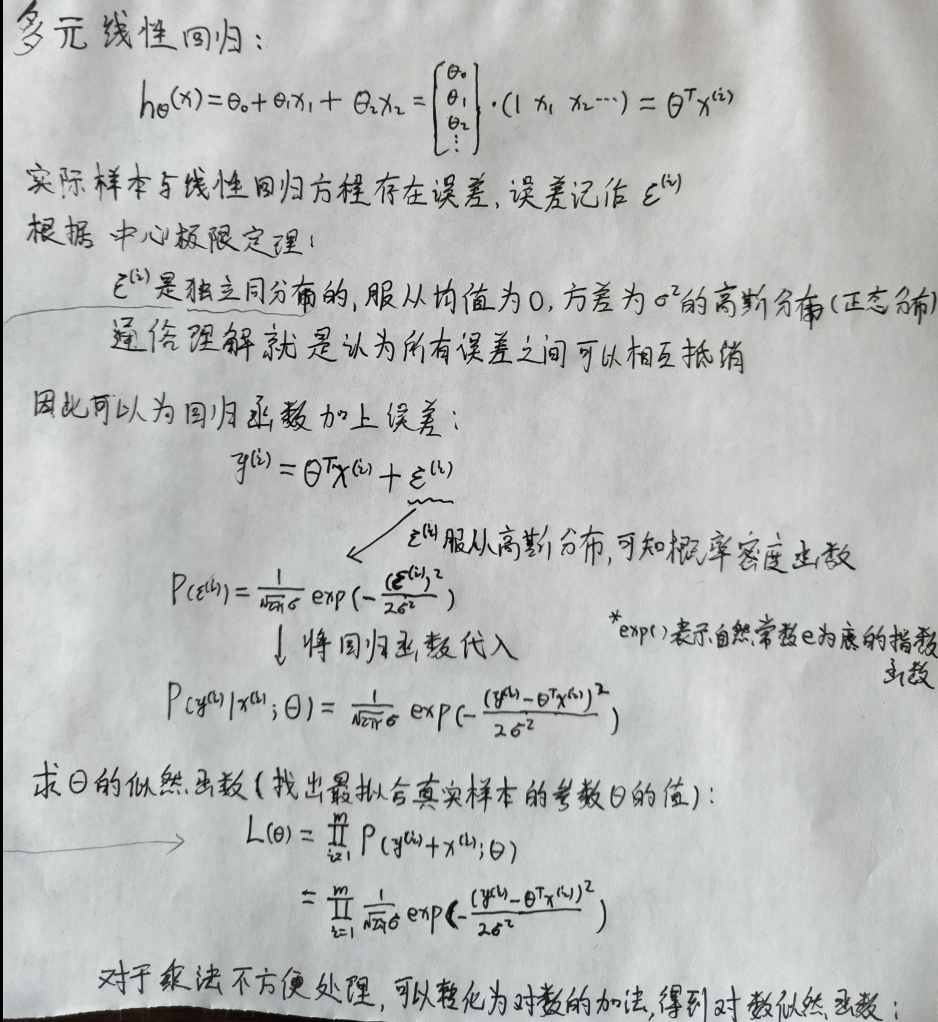 多元线性回归:
hθ(x)=θ₀+θ₁x₁+θ₂x₂=[θ₀ θ₁ θ₂ ⋮]·(1 x₁ x₂…)=θᵀx⁽ⁱ⁾
实际样本与线性回归方程存在误差,误差记作 ε⁽ⁱ⁾
根据 中心极限定理:
ε⁽ⁱ⁾是独立同分布的,服从均值为0,方差为σ²的高斯分布(正态分布)
通俗理解就是认为所有误差之间可以相互抵销
因此可以为回归函数加上误差:
y⁽ⁱ⁾=θᵀx⁽ⁱ⁾+ε⁽ⁱ⁾
ε⁽ⁱ⁾服从高斯分布,可知概率密度函数
P(ε⁽ⁱ⁾)=1/(√2π σ) exp(-(ε⁽ⁱ⁾)²/2σ²)
*exp()表示自然常数e为底的指数
函数
↓ 将回归函数代入
P(y⁽ⁱ⁾|x⁽ⁱ⁾;θ)=1/(√2π σ) exp(-(y⁽ⁱ⁾-θᵀx⁽ⁱ⁾)²/2σ²)
求θ的似然函数(找出最拟合真实样本的参数θ的值):
L(θ)=∏ᵢ₌₁ᵐ P(y⁽ⁱ⁾+x⁽ⁱ⁾;θ)
=∏ᵢ₌₁ᵐ 1/(√2π σ) exp(-(y⁽ⁱ⁾-θᵀx⁽ⁱ⁾)²/2σ²)
对于乘法不方便处理,可以转化为对数的加法,得到对数似然函数: